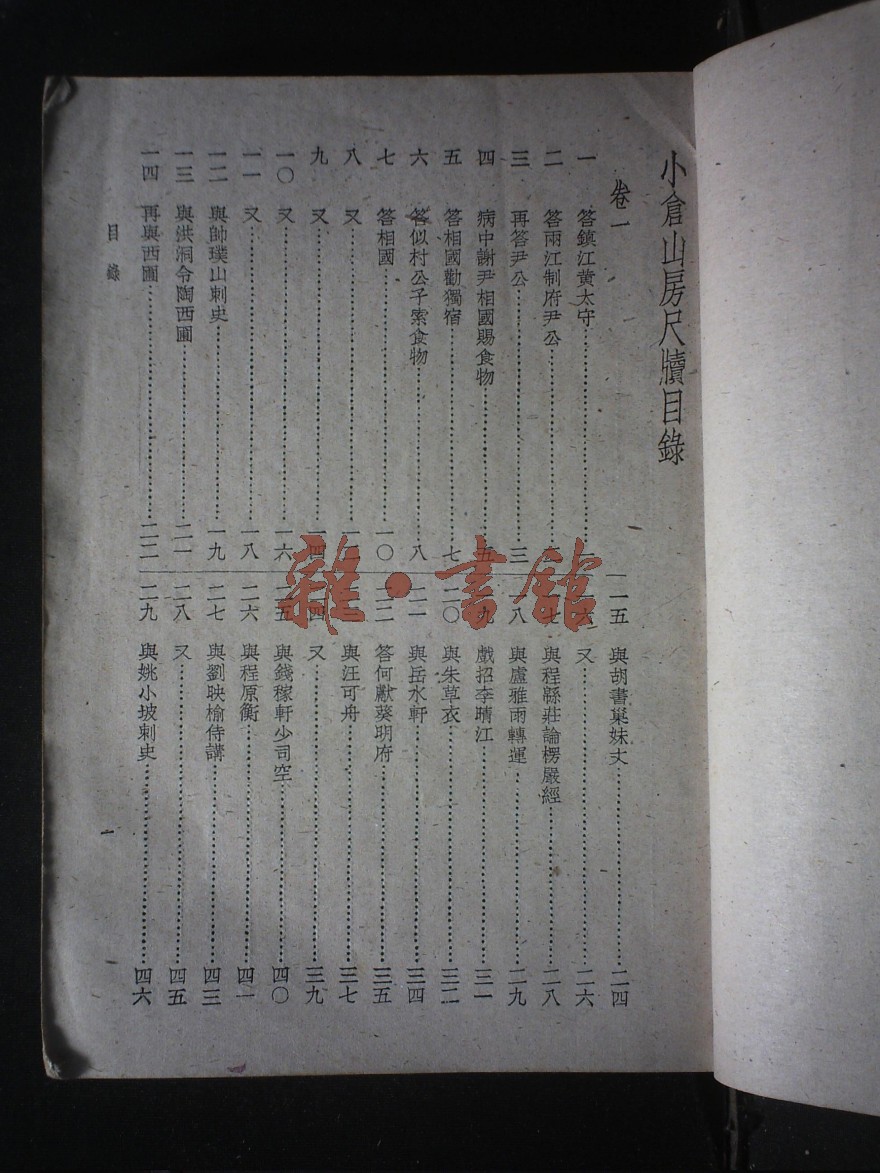 小倉山房尺牘目錄
卷一
一 答鎮江黃太守……一
二 答兩江制府尹公……
三 再答尹公……三
四 病中謝尹相國賜食物……五
五 答相國勸獨宿……七
六 答似村公子索食物……八
七 答相國……一〇
八 又……
九 又……一四
一〇 又……一六
一一 又……一八
一二 與帥璞山刺史……一九
一三 與洪洞令陶西圃……二一
一四 再與西圃……二二
一五 與胡書巢妹丈……二四
一六 又……二六
一七 與程縣莊論楞嚴經……二八
一八 與盧雅雨轉運……二九
一九 戲招李晴江……三一
二〇 與朱草衣……三二
二一 與岳水軒……三四
二二 答何獻葵明府……三五
二三 與汪可舟……三七
二四 又……三九
二五 與錢稼軒少司空……四〇
二六 與程原衡……四一
二七 與劉映榆侍講……四三
二八 又……四五
二九 與姚小坡刺史……四六
目錄
一
雜·書館